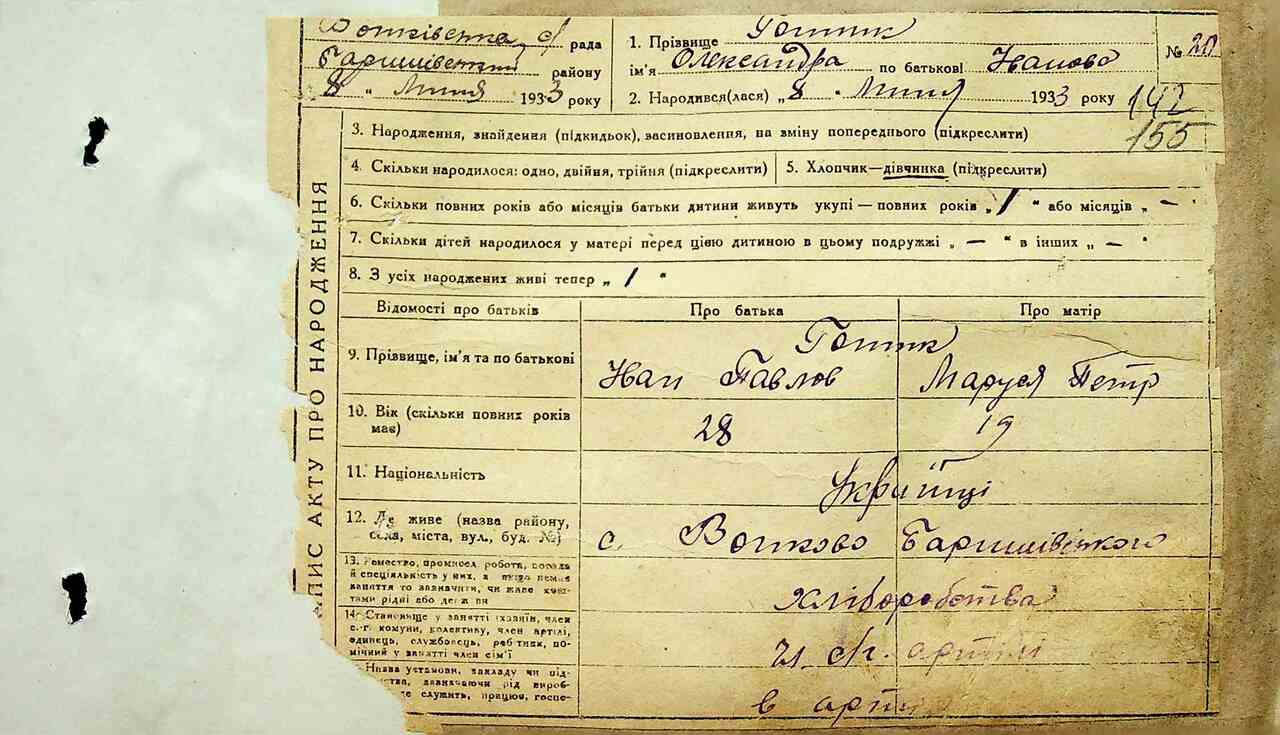 Вошківська с/рада
Баришівський району
"8" Липня 1933 року
1. Прізвище Гопник № 20
ім'я Олександра по батькові Іванова
2. Народився(лася) „8 " Липня 1933 року 142
155
3. Народження, знайдення (підкидьок), васиновлення, на зміну попереднього (підкреслити)
4. Скільки народилося: одно, двійня, трійня (підкреслити) 5. Хлопчик—дівчинка (підкреслити)
6. Скільки повних років або місяців батьки дитини живуть укупі — повних років „ 1 " або місяців „ — "
7. Скільки дітей народилося у матері перед цією дитиною в цьому подружжі „ — " в інших „ — "
8. З усіх народжених живі тепер „ 1 "
ЗАПИС АКТУ ПРО НАРОДЖЕННЯ
Відомості про батьків Про батька Про матір
9. Прізвище, ім'я та по батькові
Іван Павлов Маруся Петр
10. Вік (скільки повних років
має) 28 19
11. Національність Українці
12. Де живе (назва району,
села, міста, вул., буд. №) с. Баришівського
хліборобства
14. Становище у занятті (хазяїн, член
с.-г. комуни, колективу, член артілі,
одинець, службовець, робітник, по-
мічний у занятті член сім'ї чл. с/г. артілі
Назва установи, закладу чи під-
служить, працює, госпо- в арт